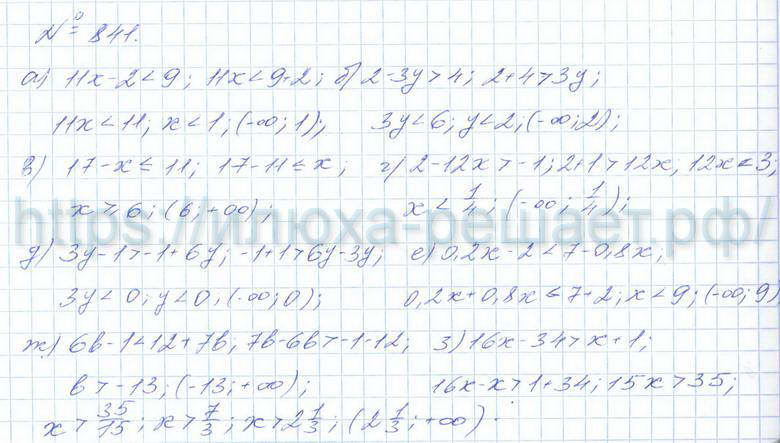 № 841.
а) 11x-2<9; 11x<9+2; б) 2-3y>4; 2+4>3y;
11x<11; x<1; (-∞; 1); 3y<6; y<2; (-∞; 2);
в) 17-x≤11; 17-11≤x; г) 2-12x>-1; 2+1>12x; 12x<3;
x>6; (6; +∞); x<1/4; (-∞; 1/4);
https://илюха-решает.рф/
д) 3y-1>-1+6y; -1+1>6y-3y; е) 0,2x-2<7-0,8x;
3y<0; y<0, (-∞; 0); 0,2x+0,8x<7+2; x<9; (-∞; 9)
ж) 6b-1<12+7b; 7b-6b>-1-12; з) 16x-34>x+1;
b>-13; (-13; +∞); 16x-x>1+34; 15x>35;
x>35/15; x>7/3; x>2 1/3; (2 1/3; +∞).